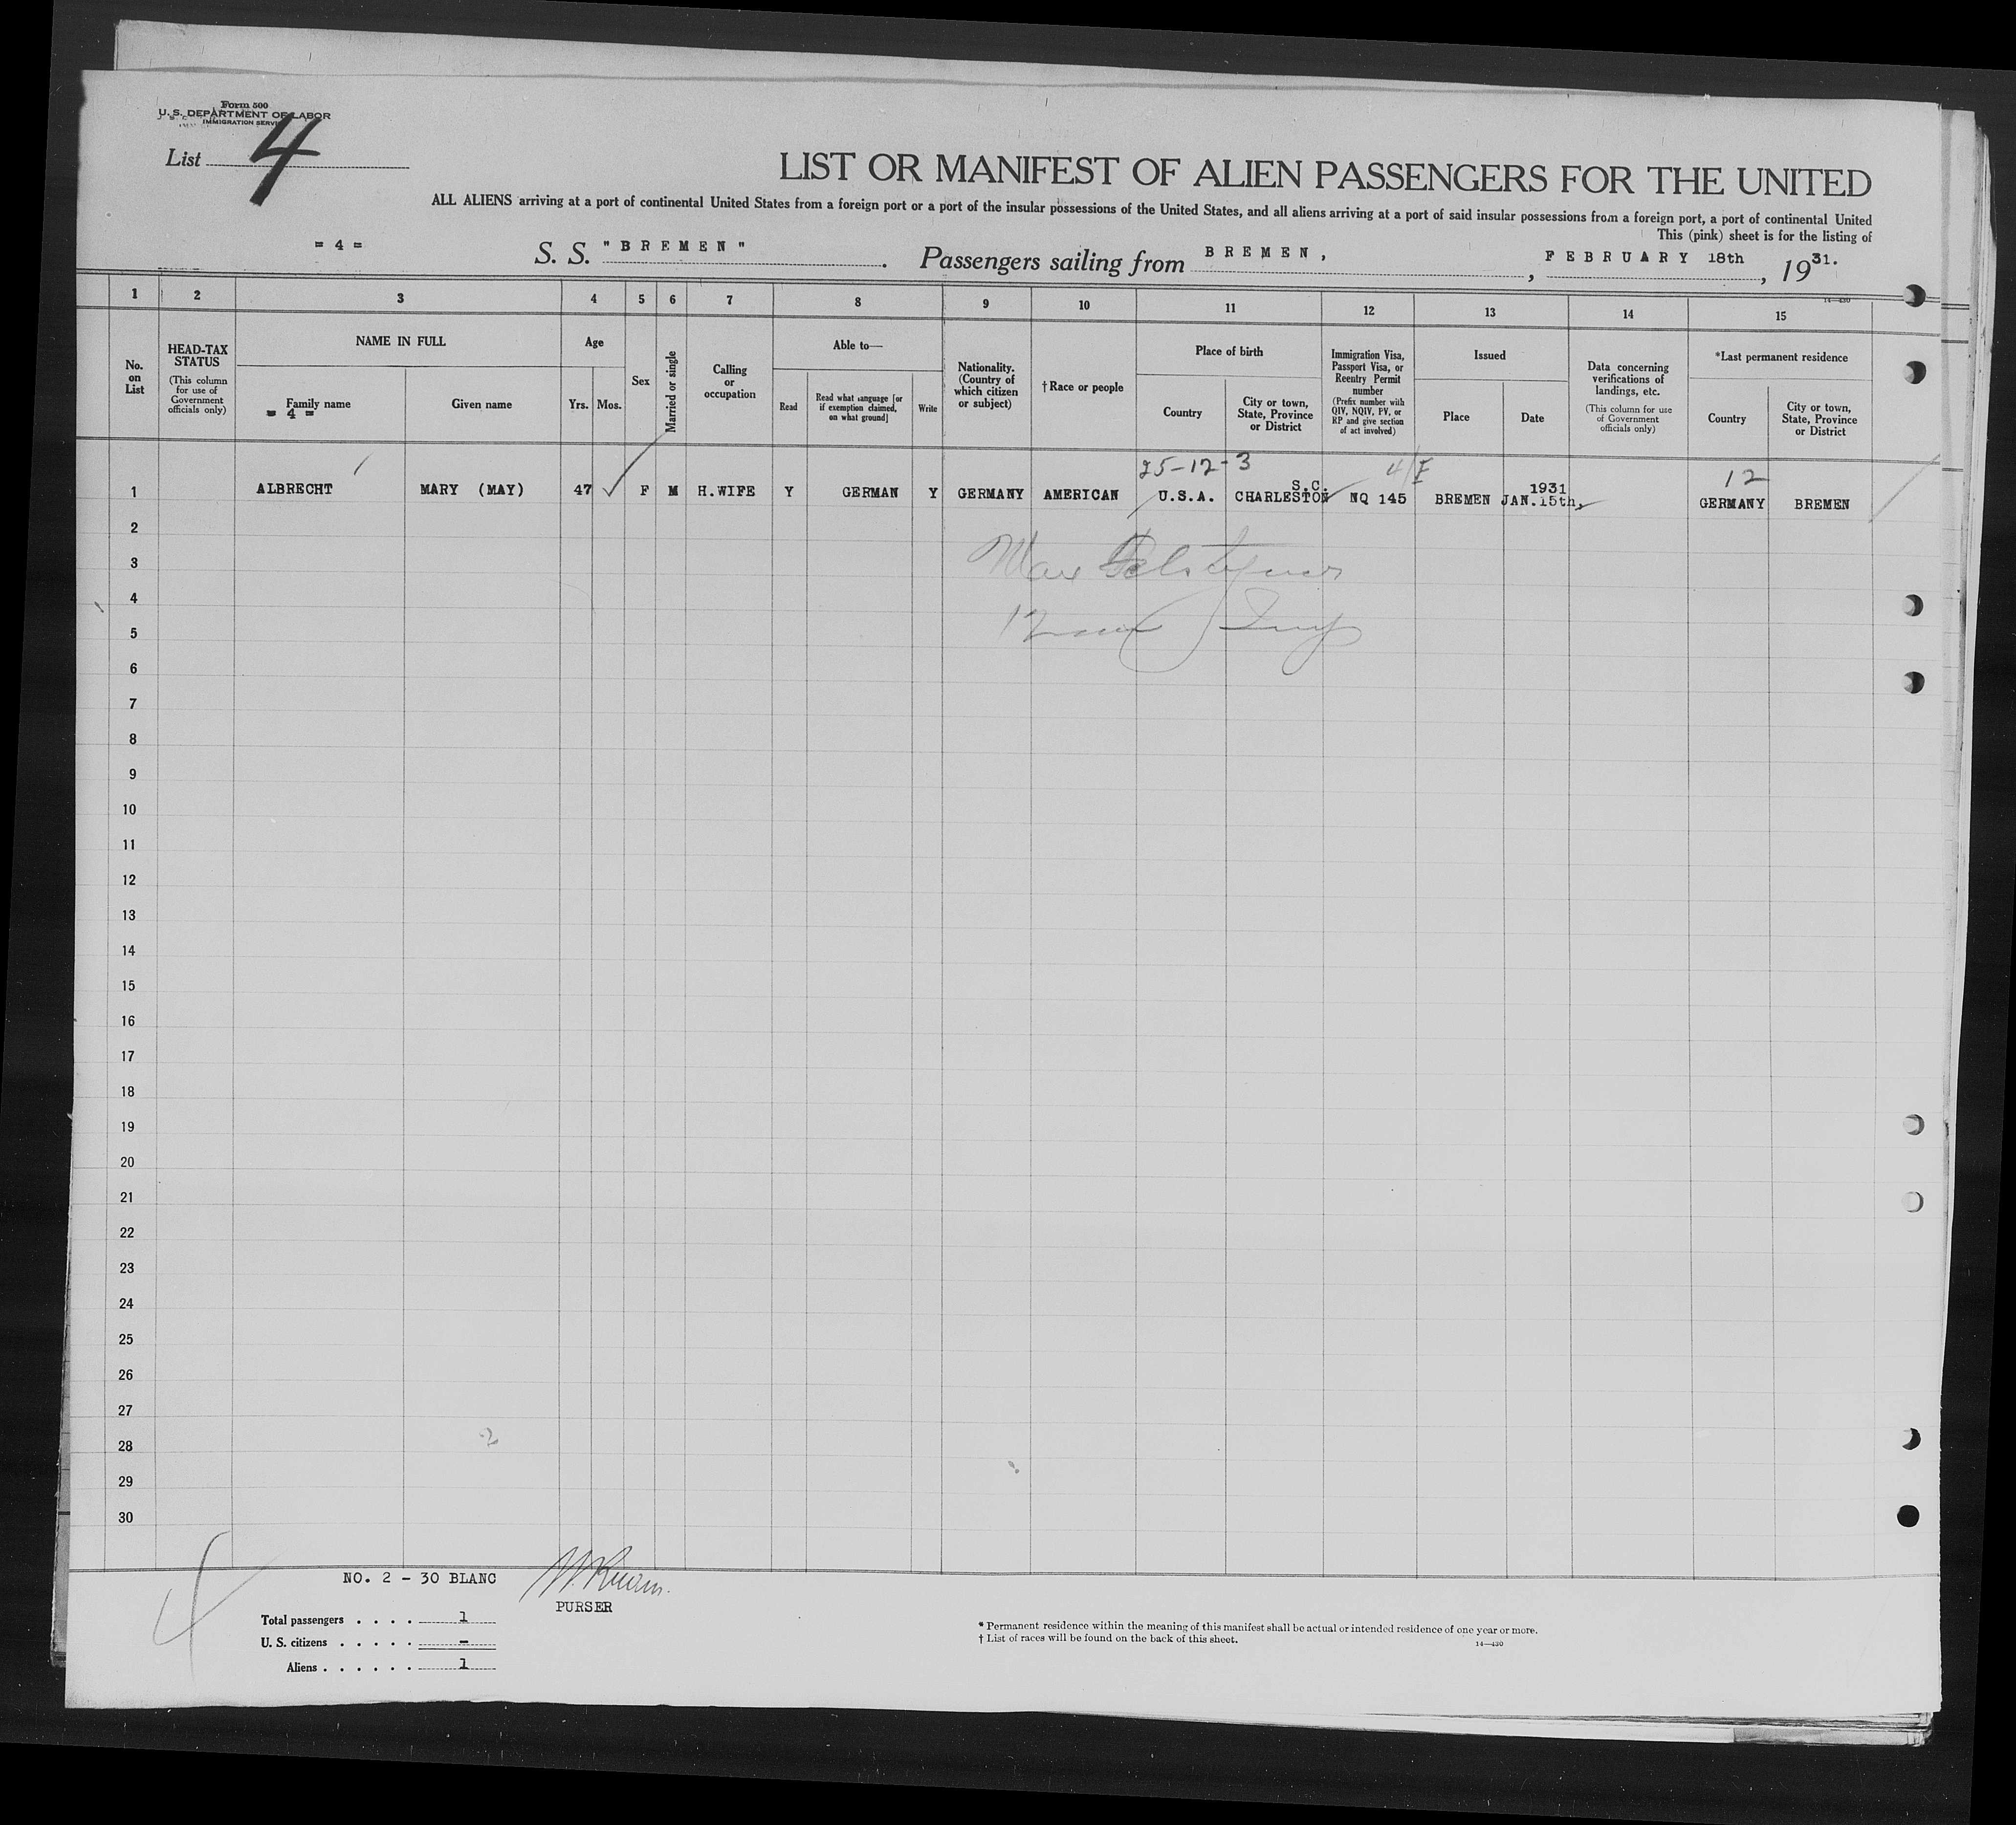 Form 500
U. S. DEPARTMENT OF LABOR
IMMIGRATION SERVICE
List 4
LIST OR MANIFEST OF ALIEN PASSENGERS FOR THE UNITED
ALL ALIENS arriving at a port of continental United States from a foreign port or a port of the insular possessions of the United States, and all aliens arriving at a port of said insular possessions from a foreign port, a port of continental United
This (pink) sheet is for the listing of
= 4 = S. S. "BREMEN". Passengers sailing from BREMEN, , FEBRUARY 18th , 1931.
1 2 3 4 5 6 7 8 9 10 11 12 13 14 15
14—430
No. on List
HEAD-TAX STATUS
(This column for use of Government officials only)
NAME IN FULL
Family name
= 4 =
Given name
Age
Yrs. Mos.
Sex
Married or single
Calling or occupation
Able to—
Read
Read what language [or if exemption claimed, on what ground]
Write
Nationality. (Country of which citizen or subject)
† Race or people
Place of birth
Country
City or town, State, Province or District
Immigration Visa, Passport Visa, or Reentry Permit number
(Prefix number with QIV, NQIV, PV, or RP and give section of act involved)
Issued
Place
Date
Data concerning verifications of landings, etc.
(This column for use of Government officials only)
*Last permanent residence
Country
City or town, State, Province or District
25-12-3 4/I 12
1 ALBRECHT MARY (MAY) 47 F M H.WIFE Y GERMAN Y GERMANY AMERICAN U.S.A. CHARLESTON S.C. NQ 145 BREMEN JAN.15th, 1931 GERMANY BREMEN
2
3
4
5
6
7
8
9
10
11
12
13
14
15
16
17
18
19
20
21
22
23
24
25
26
27
28
29
30
NO. 2 - 30 BLANC
PURSER
Total passengers . . . . 1
U. S. citizens . . . . . -
Aliens . . . . . . 1
* Permanent residence within the meaning of this manifest shall be actual or intended residence of one year or more.
† List of races will be found on the back of this sheet.
14—430